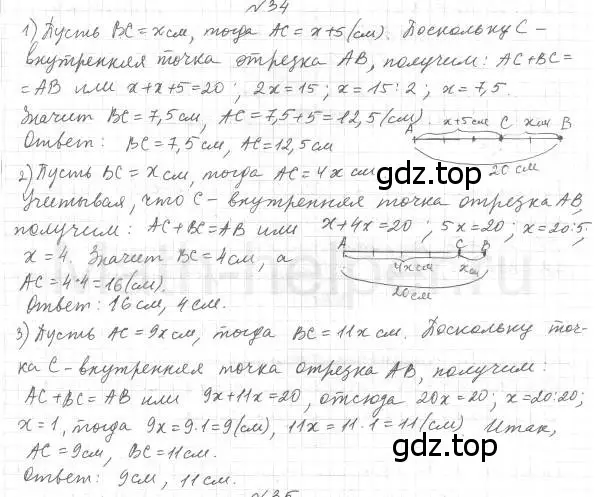 №34
1) Пусть BC = x см, тогда AC = x+5 (см). Поскольку C -
внутренняя точка отрезка AB, получим: AC+BC=
=AB или x+x+5=20; 2x=15; x=15:2; x=7,5.
Значит BC=7,5см, AC=7,5+5=12,5(см).
Ответ: BC=7,5см, AC=12,5см
A x+5см C xсм B
20 см
gdz.top
2) Пусть BC = x см, тогда AC = 4x см
Учитывая, что C - внутренняя точка отрезка AB,
получим: AC+BC=AB или x+4x=20; 5x=20; x=20:5;
x=4. Значит BC=4см, а
AC=4·4=16(см).
Ответ: 16см, 4см.
A C B
4xсм xсм
20см
math-helper.ru
3) Пусть AC=9x см, тогда BC=11x см. Поскольку точ-
ка C - внутренняя точка отрезка AB, получим:
AC+BC=AB или 9x+11x=20, отсюда 20x=20; x=20:20;
x=1, тогда 9x=9·1=9(см), 11x=11·1=11(см) Итак,
AC=9см, BC=11см.
Ответ: 9см, 11см.
gdz.top
№35